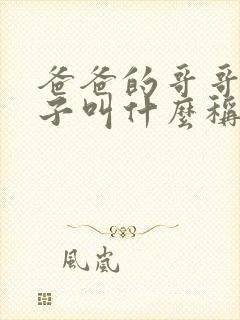 爸爸的哥哥
子叫什麼稱
風嵐